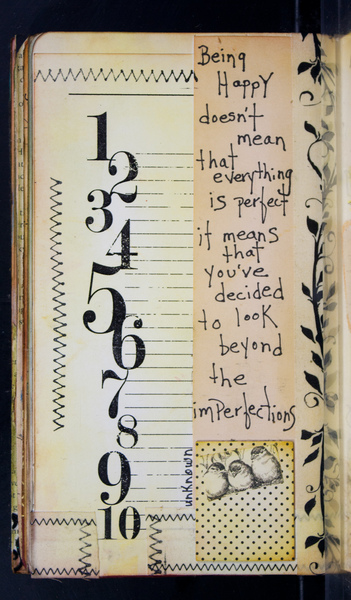 1
2
3
4
5
6
7
8
9
10
Being
Happy
doesn't
mean
that
everything
is perfect
it means
that
you've
decided
to look
beyond
the
imperfections
unknown